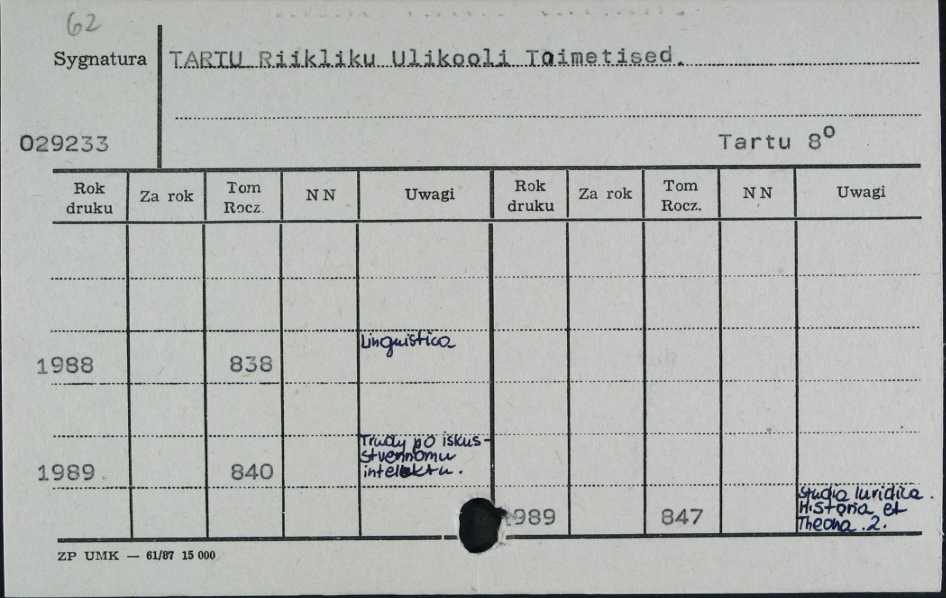 62
Sygnatura TARTU Riikliku Ulikooli Toimetised.
029233 Tartu 8°
Rok druku Za rok Tom Rocz. NN Uwagi Rok druku Za rok Tom Rocz. NN Uwagi
1988 838 Linguistica
1989 840 Trudy po iskus-
stvennomu
intellektu.
1989 847 Studia Iuridica.
Historia et
Theoria. 2.
ZP UMK — 61/87 15 000